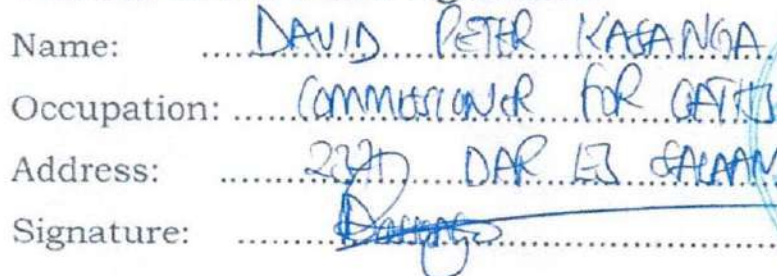 Name: DAVID PETER KASANGA
Occupation: COMMISSIONER FOR OATHS
Address: DAR ES SALAAM
Signature: